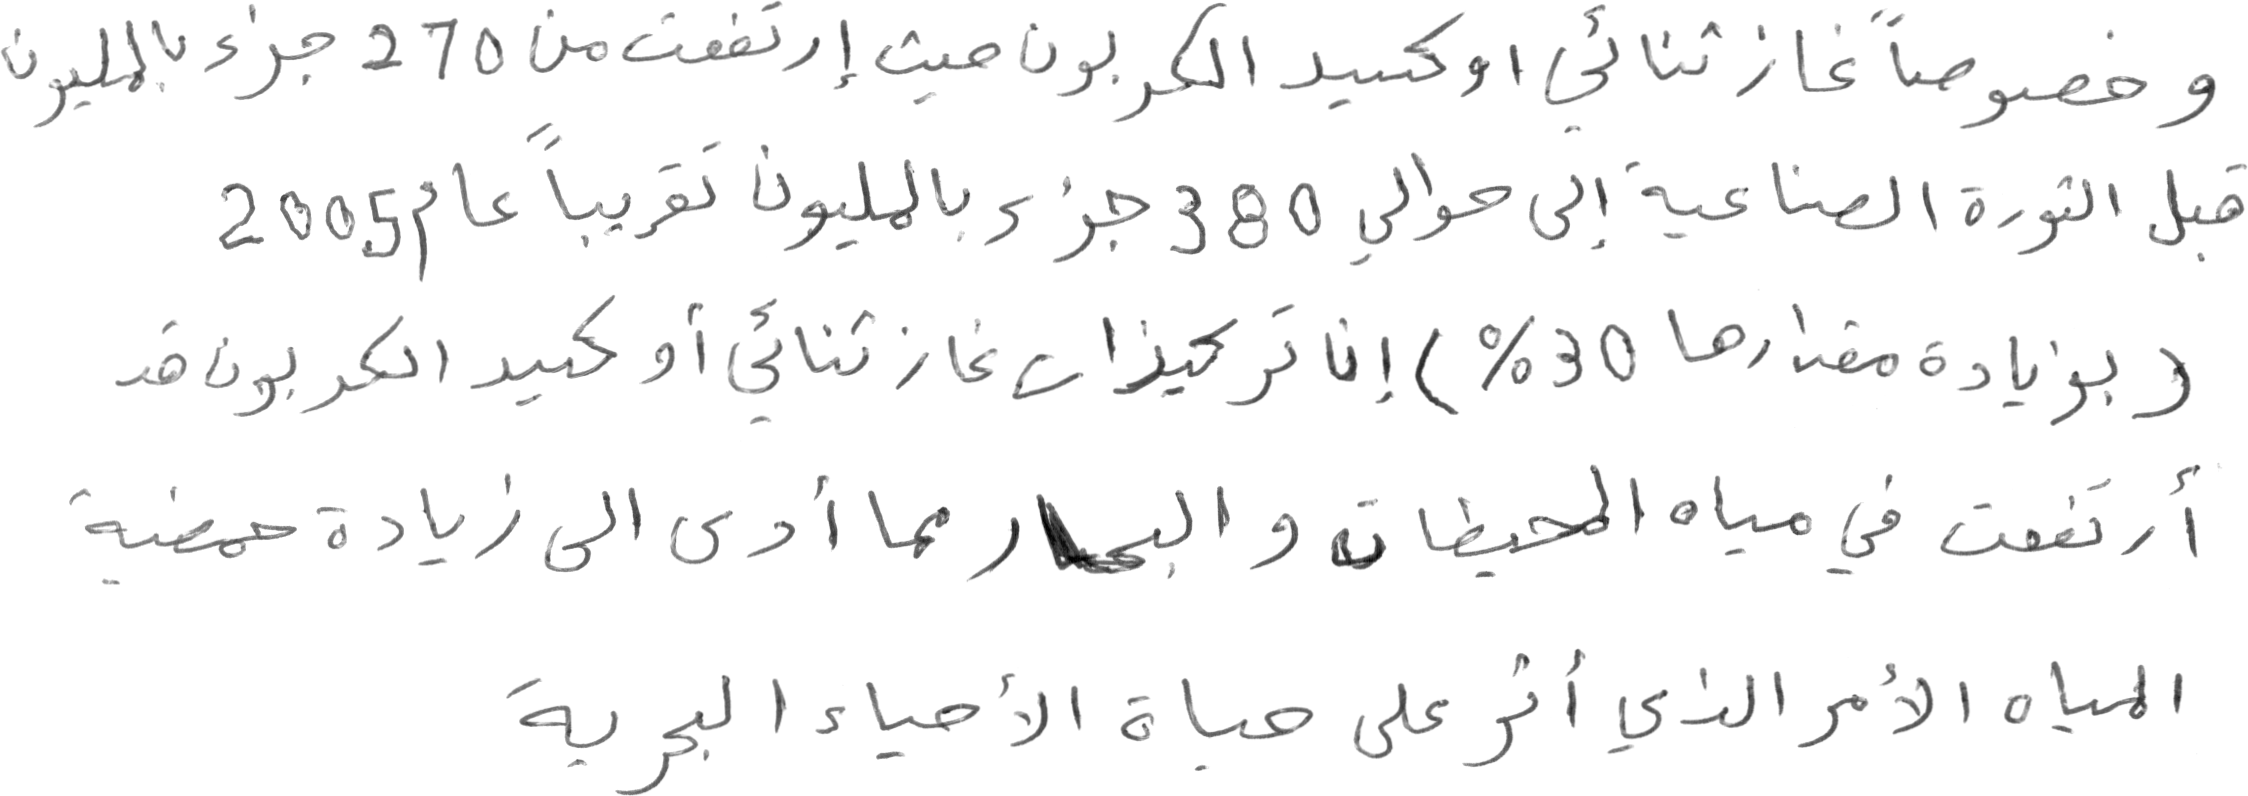 وخصوصاً غاز ثنائي اوكسيد الكربون حيث إرتفعت من 270 جزء بالمليون
قبل الثورة الصناعية إلى حوالي 380 جزء بالمليون تقريباً عام 2005
(بزيادة مقدارها 30%) إن تركيزات غاز ثنائي أوكسيد الكربون قد
أرتفعت في مياه المحيطات والبحار مما أدى الى زيادة حمضية
المياه الأمر الذي أثر على حياة الأحياء البحرية